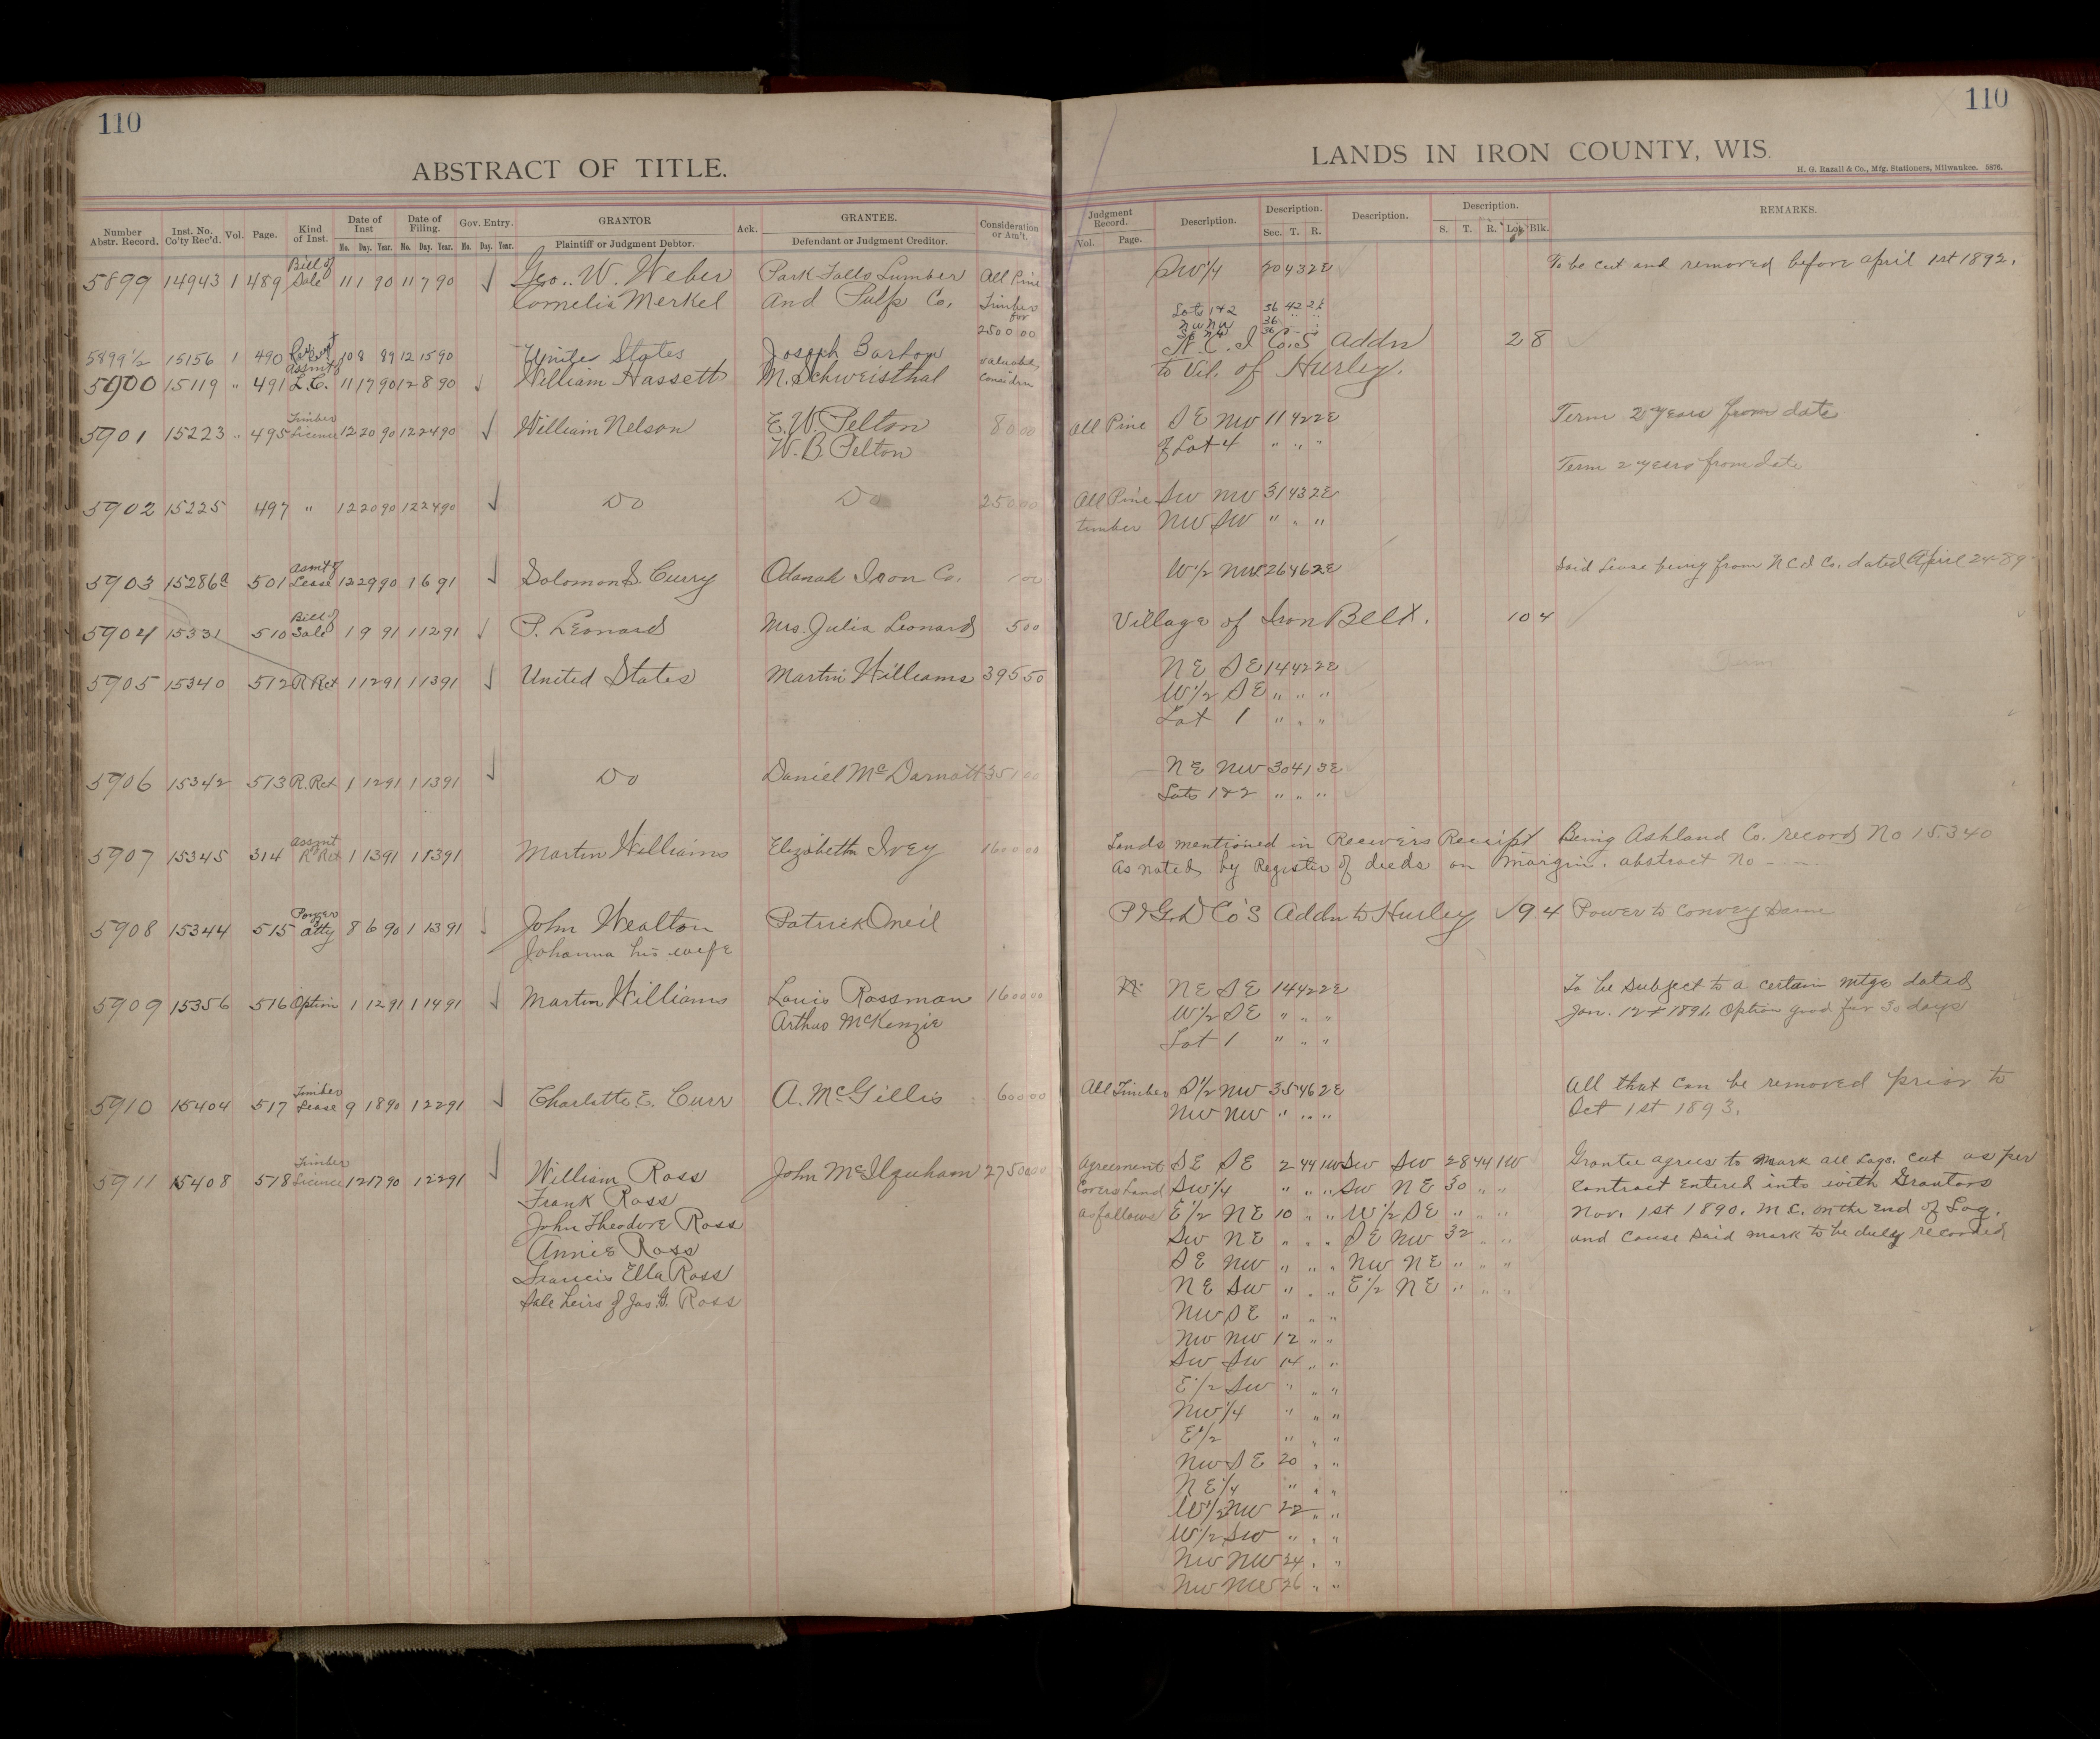 110
ABSTRACT OF TITLE.
Number Abstr. Record. Inst. No. Co'ty Rec'd. Vol. Page. Kind of Inst. Date of Inst Date of Filing. Gov. Entry. GRANTOR Ack. GRANTEE. Consideration or Am't.
Mo. Day. Year. Mo. Day. Year. Mo. Day. Year. Plaintiff or Judgment Debtor. Defendant or Judgment Creditor.
5899 14943 1 489 Bill of Sale 11 1 90 11 7 90 Geo. W. Weber Park Falls Lumber All Pine
Cornelis Merkel and Pulp Co. Timber for
2500 00
5899½ 15156 1 490 10 8 89 12 15 90 United States Joseph Barlow valuable
5900 15119 " 491 Assmt of L.C. 11 17 90 12 8 90 William Hassett M. Schweisthal Considrn
5901 15223 " 495 Timber Licence 12 20 90 12 24 90 William Nelson E. W. Pelton 80 00
W. B. Pelton
5902 15225 497 " 12 20 90 12 24 90 Do Do 250 00
5903 15286a 501 Asmt of Lease 12 29 90 1 6 91 Solomon S. Curry Odanah Iron Co. 1 00
5904 15331 510 Bill of Sale 1 9 91 1 12 91 P. Leonard Mrs. Julia Leonard 5 00
5905 15340 512 R Rct 1 12 91 1 13 91 United States Martin Williams 395 50
5906 15342 513 R. Rct 1 12 91 1 13 91 Do Daniel McDarnott 351 00
5907 15345 314 Assmt R Rct 1 13 91 1 13 91 Martin Williams Elizabeth Ivey 1600 00
5908 15344 515 Power Atty 8 6 90 1 13 91 John Wealton Patrick Oneil
Johanna his wife
5909 15356 516 Option 1 12 91 1 14 91 Martin Williams Louis Rossman 1600 00
Arthur McKenzie
5910 15404 517 Timber Lease 9 18 90 1 22 91 Charlotte E. Curr A. McGillis 600 00
5911 15408 518 Timber Licence 12 17 90 1 22 91 William Ross John McIlquham 27500 00
Frank Ross
John Theodore Ross
Annie Ross
Francis Ella Ross
Sole heirs of Jas. G. Ross
110
LANDS IN IRON COUNTY, WIS.
H. G. Razall & Co., Mfg. Stationers, Milwaukee. 5876.
Judgment Record. Description. Description. Description. Description. REMARKS.
Vol. Page. Sec. T. R. S. T. R. Lot. Blk.
SW¼ 20 43 2E To be cut and removed before April 1st 1892.
Lots 1 & 2 36 42 2E
NW NW 36 " "
36 " "
N. C. I Co.S Addn 2 8
to Vil. of Hurley.
All Pine SE NW 11 42 2E Term 2 years from date
of Lot 4 " " "
Term 2 years from date
All Pine SW NW 31 43 2E
timber NW SW " " "
W½ NW 26 46 2E Said Lease being from N C I Co. dated April 24-89
Village of Iron Belt. 10 4
NE SE 14 42 2E
W½ SE " " "
Lot 1 " " "
NE NW 30 41 3E
Lots 1 & 2 " " "
Lands mentioned in Receivers Receipt Being Ashland Co. record No 15340
As noted by Register of deeds on margin. abstract No - - -
Addn to Hurley 9 4 Power to Convey Same
NE SE 14 42 2E To be Subject to a certain mtge dated
W½ SE " " " Jan. 12th 1891. Option good for 30 days
Lot 1 " " "
All Timber S½ NW 35 46 2E All that can be removed prior to
NW NW " " " Oct 1st 1893.
Agreement SE SE 2 44 1W SW SW 28 44 1W Grantee agrees to Mark all Logs. cut as per
Covers Land SW¼ " " " SW NE 30 " " Contract Entered into with Grantors
as follows E½ NE 10 " " W½ SE " " " Nov. 1st 1890. M C. on the End of Log.
SW NE " " " SE NW 32 " " and Cause Said mark to be duly recorded
SE NW " " " NW NE " " "
NE SW " " " E½ NE " " "
NW SE " " "
NW NW 12 " "
SW SW 14 " "
E½ SW " " "
NW¼ " " "
E½ " " "
NW SE 20 " "
NE¼ " " "
W½ NW 22 " "
W½ SW " " "
NW NW 24 " "
NW NW 26 " "